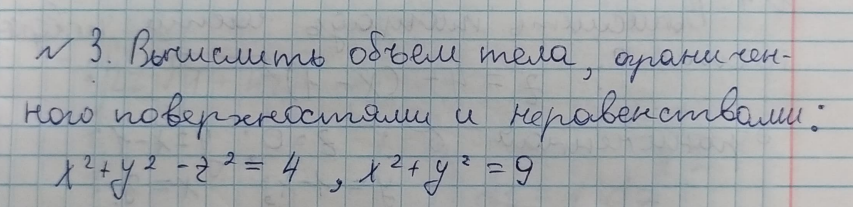 № 3. Вычислить объем тела, ограничен-
ного поверхностями и неравенствами:
x² + y² - z² = 4 , x² + y² = 9